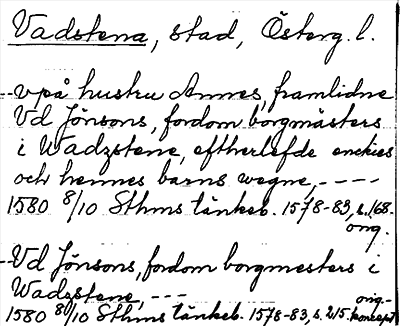 Vadstena, stad, Österg. l.
-- vpå hustru Annes, framlidne
Vd Jönsons, fordom borgmästers
i Wadzstene, efftherlefde enckies
och hennes barns wegne, - - - -
1580 8/10 Sthms tänkeb. 1578-83, s. 168.
orig.
-- Vd Jönsons, fordom borgmesters i
Wadzstene, - - -
orig.-
1580 8/10 Sthms tänkeb. 1578-83, s. 215. koncept